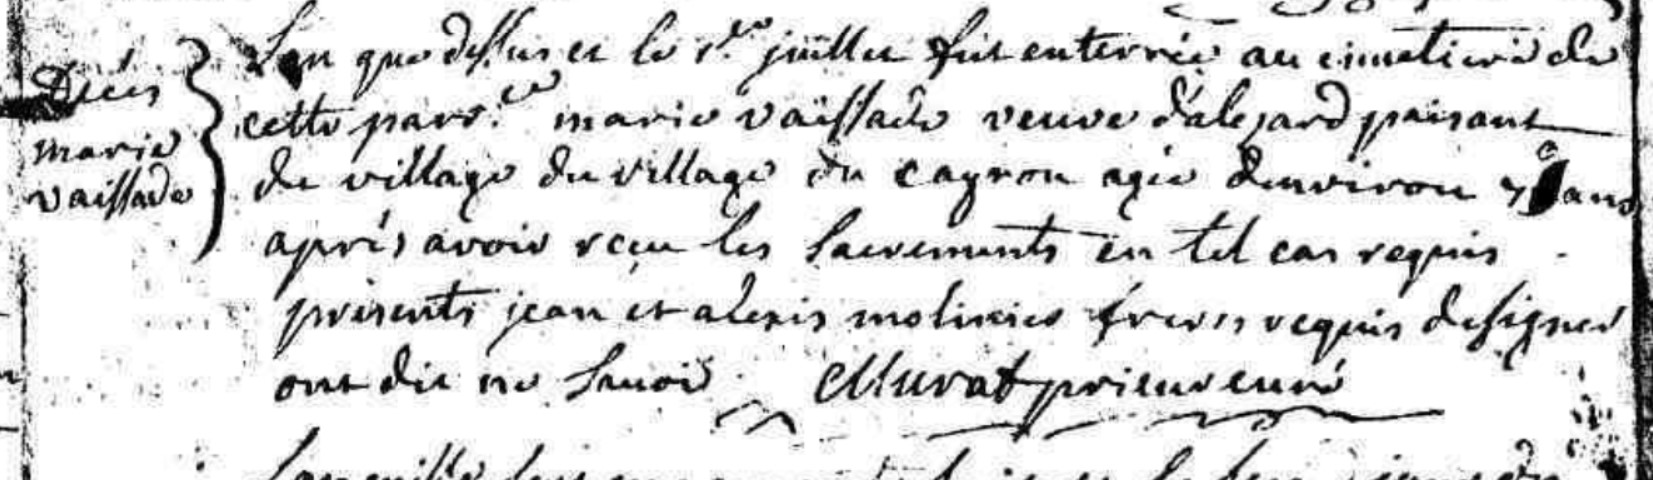 Décés
marie
vaissade
L'an que dessus et le 1.er juillet fut enterrée au cimetiere de
cette parr.ce marie vaissade veuve d'alejard païsant
du village du village du cayron agée denviron ans
aprés avoir reçu les sacrements en tel cas requis
présents jean et alexis molinies freres requis de signer
ont dit ne savoir Murat prieur curé